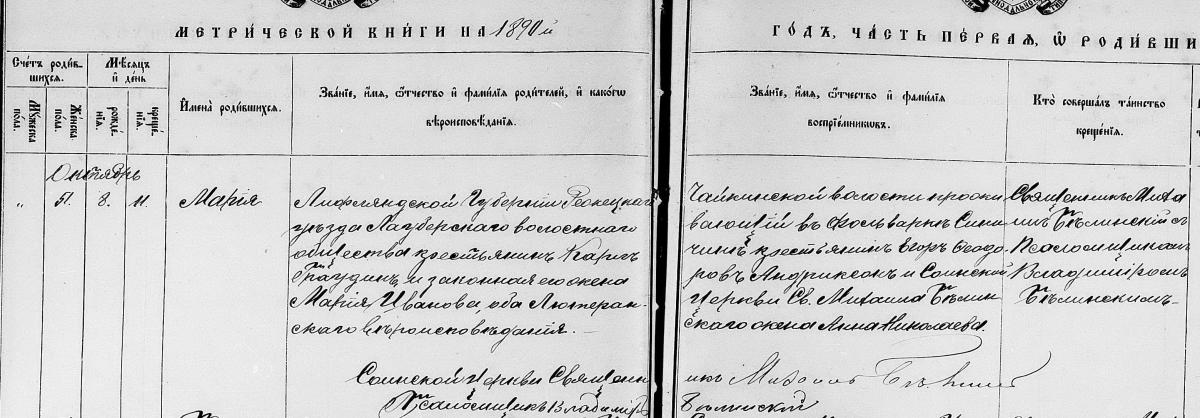 МЕТРИ́ЧЕСКОЙ КНИ́ГИ НА 1890й
ГОДЪ, ЧА́СТЬ ПЕ́РВАЯ, Ѡ҆ РОДИ́ВШИ
Сче́тъ роди́в-
шихся.
Мꙋ́жеска
по́ла.
Же́нска
по́ла.
Мѣ́сяцъ
и҆ де́нь
рожде́-
нїѧ.
креще́-
нїѧ.
И҆мена̀ роди́вшихсѧ.
Зва́нїе, и҆́мѧ, ѻ҆́тчество и҆ фами́лїѧ роди́телей, и҆ како́гѡ
вѣроисповѣ́данїѧ.
Зва́нїе, и҆́мѧ, ѻ҆́тчество и҆ фами́лїѧ
воспрїе́мниковъ.
Кто̀ соверша́лъ та́инство
креще́нїѧ.
Октябрь
„ 51. 8. 11. Марія
Лифляндской Губерніи
уѣзда Лауберскаго волостнаго
общества крестьянинъ Карлъ
Граудинъ и законная его жена
Марія Иванова, оба Лютеран-
скаго вѣроисповѣданія. —
волости прожи
вающій въ фольваркѣ Сини
чинѣ крестьянинъ Егоръ Ѳеодо
ровъ Андриксонъ и Соинской
Церкви Св. Михаила Бѣлин-
скаго жена Анна Николаева.
Священникъ Миха
илъ Бѣлинскій съ
Псаломщикомъ
Владиміромъ
Бѣлинскимъ-
Соинской Церкви Священн
икъ Михаилъ Бѣлинскій
Псаломщикъ Владиміръ
Бѣлинскій